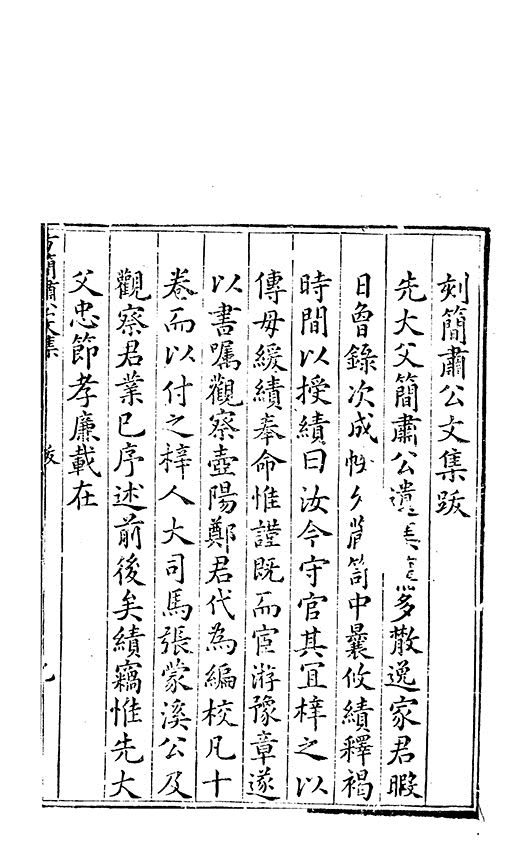 刻簡肅公文集跋
先大父簡肅公遺多散逸家君暇
日曾錄次成帙笥中曩攸績釋褐
時間以授績曰汝今守官其宜梓之以
傳毋緩績奉命惟謹既而宦游豫章遂
以書囑觀察壺陽鄭君代為編校凡十
卷而以付之梓人大司馬張蒙溪公及
觀察君業已序述前後矣績竊惟先大
父忠節孝廉載在
方簡肅公文集
跋